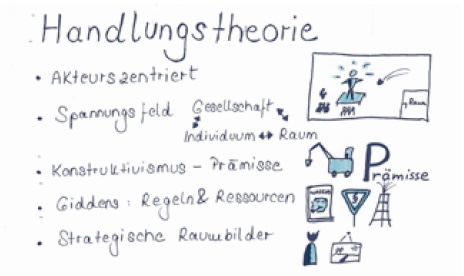 Handlungstheorie
• Akteurszentriert
• Spannungsfeld Gesellschaft
Individuum ↔ Raum
• Konstruktivismus - Prämisse
Prämisse
• Giddens: Regeln & Ressourcen
• Strategische Raumbilder